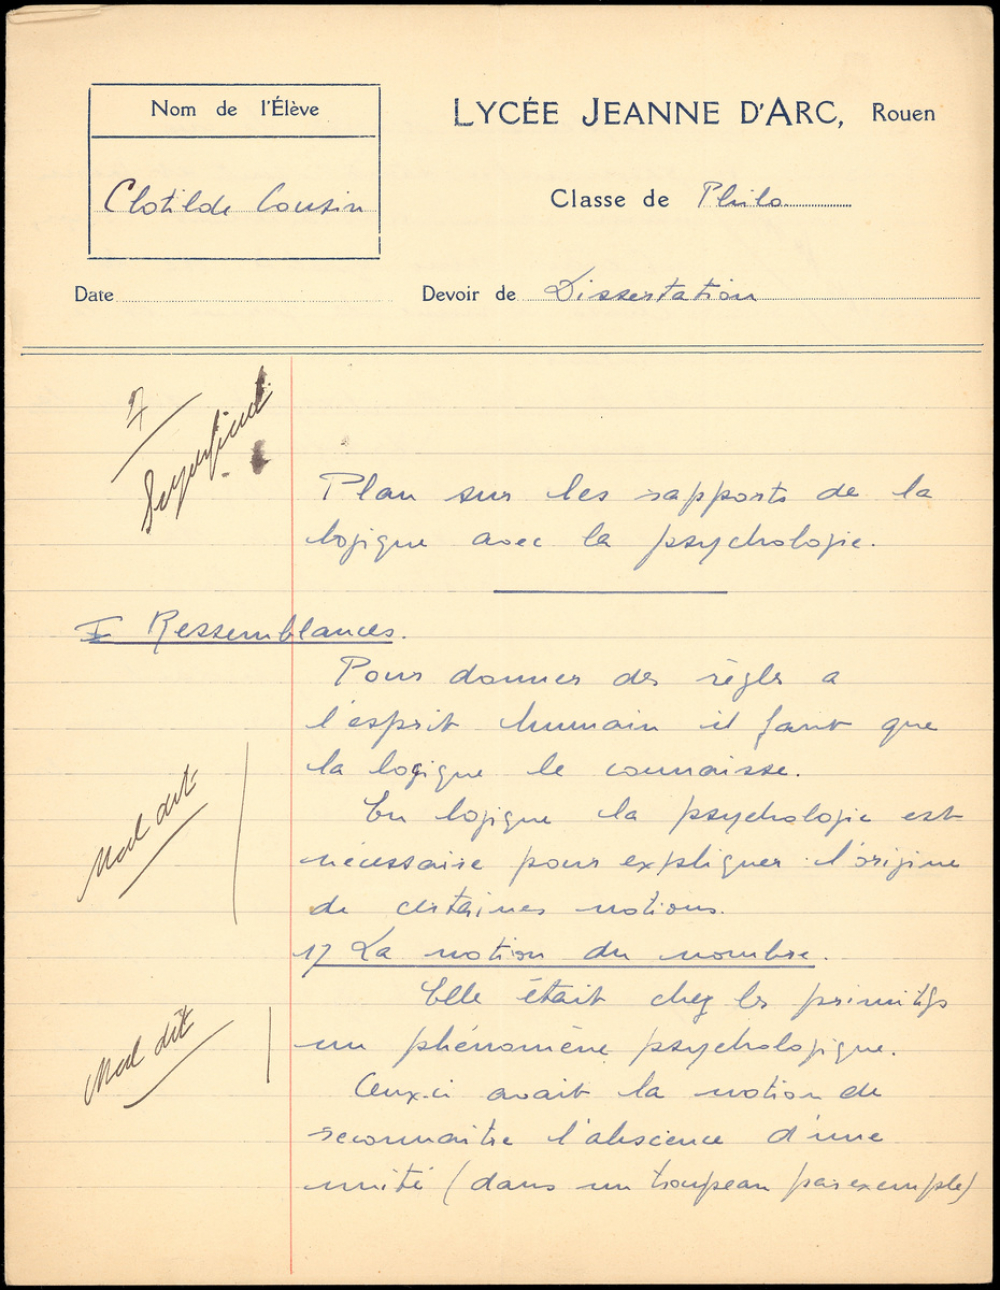 Nom de l'Élève
LYCÉE JEANNE D'ARC, Rouen
Clotilde Cousin
Classe de Philo
Date
Devoir de Dissertation
7
Superficiel
Plan sur les rapports de la
logique avec la psychologie.
I Ressemblances.
Pour donner des règles a
l'esprit humain il faut que
la logique le connaisse.
Mal dit
En logique la psychologie est
nécessaire pour expliquer l'origine
de certaines notions.
1) La notion du nombre.
Elle était chez les primitifs
Mal dit
un phénomène psychologique.
Ceux-ci avait la notion de
reconnaître l'abscence d'une
unité (dans un troupeau par exemple)